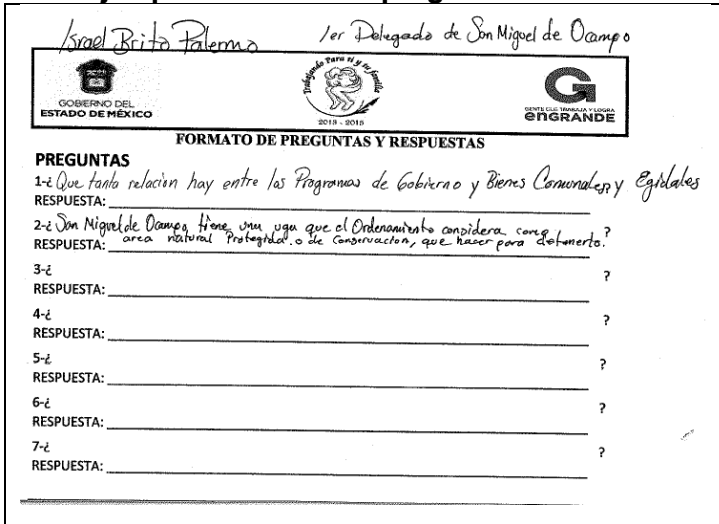 Israel Brito Palermo 1er Delegado de San Miguel de Ocampo
GOBIERNO DEL
ESTADO DE MÉXICO
Trabajando Para ti y tu familia
2013 - 2015
GENTE QUE TRABAJA Y LOGRA
enGRANDE
FORMATO DE PREGUNTAS Y RESPUESTAS
PREGUNTAS
1-¿ Que tanta relacion hay entre los Programas de Gobierno y Bienes Comunales, y Egidales
RESPUESTA:
2-¿ San Miguel de Ocampo, tiene una uga que el Ordenamiento considera como ?
RESPUESTA: area natural Protegida. o de Conservacion, que hacer para detenerlo.
3-¿ ?
RESPUESTA:
4-¿ ?
RESPUESTA:
5-¿ ?
RESPUESTA:
6-¿ ?
RESPUESTA:
7-¿ ?
RESPUESTA: